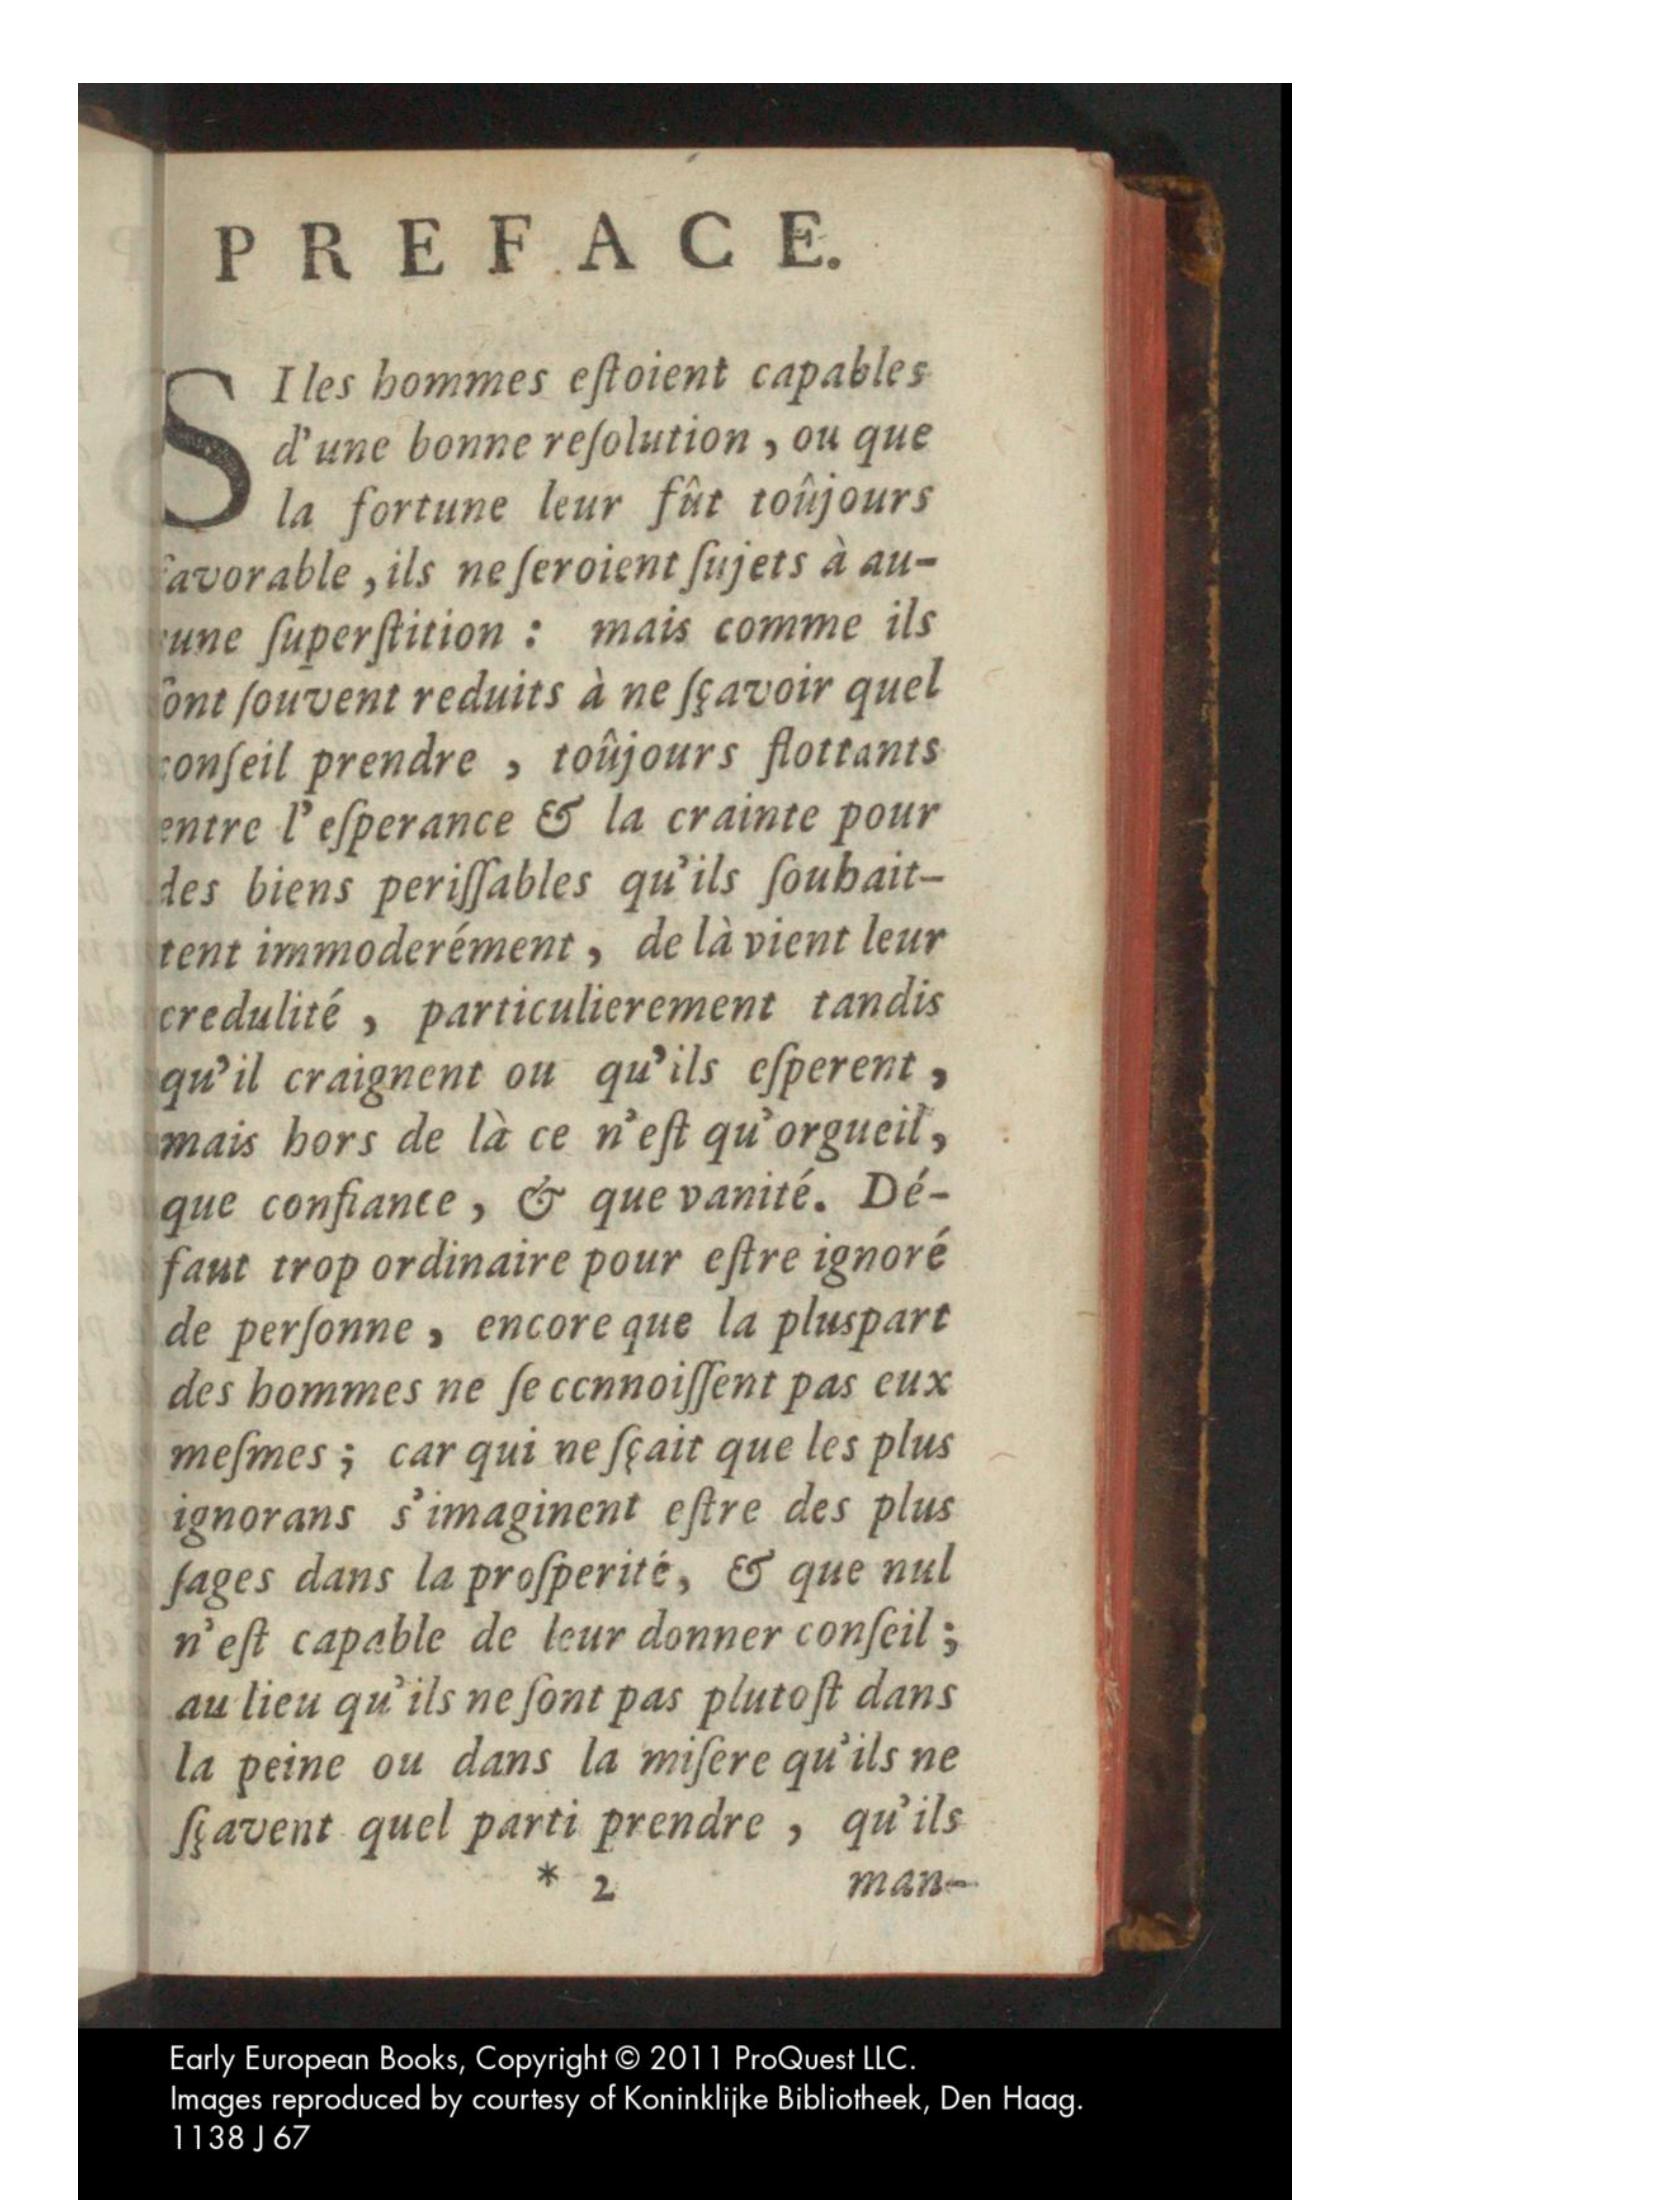 PREFACE.
SI les hommes eſtoient capables
d'une bonne reſolution, ou que
la fortune leur fût toûjours
favorable, ils ne ſeroient ſujets à au-
cune ſuperſtition : mais comme ils
ſont ſouvent reduits à ne ſçavoir quel
conſeil prendre, toûjours flottants
entre l'eſperance & la crainte pour
des biens periſſables qu'ils ſouhait-
tent immoderément, de là vient leur
credulité, particulierement tandis
qu'il craignent ou qu'ils eſperent,
mais hors de là ce n'eſt qu'orgueil,
que confiance, & que vanité. Dé-
faut trop ordinaire pour eſtre ignoré
de perſonne, encore que la pluspart
des hommes ne ſe ccnnoiſſent pas eux
meſmes ; car qui ne ſçait que les plus
ignorans s'imaginent eſtre des plus
ſages dans la proſperité, & que nul
n'eſt capable de leur donner conſeil ;
au lieu qu'ils ne ſont pas plutoſt dans
la peine ou dans la miſere qu'ils ne
ſçavent quel parti prendre, qu'ils
* 2 man-
Early European Books, Copyright © 2011 ProQuest LLC.
Images reproduced by courtesy of Koninklijke Bibliotheek, Den Haag.
1138 J 67